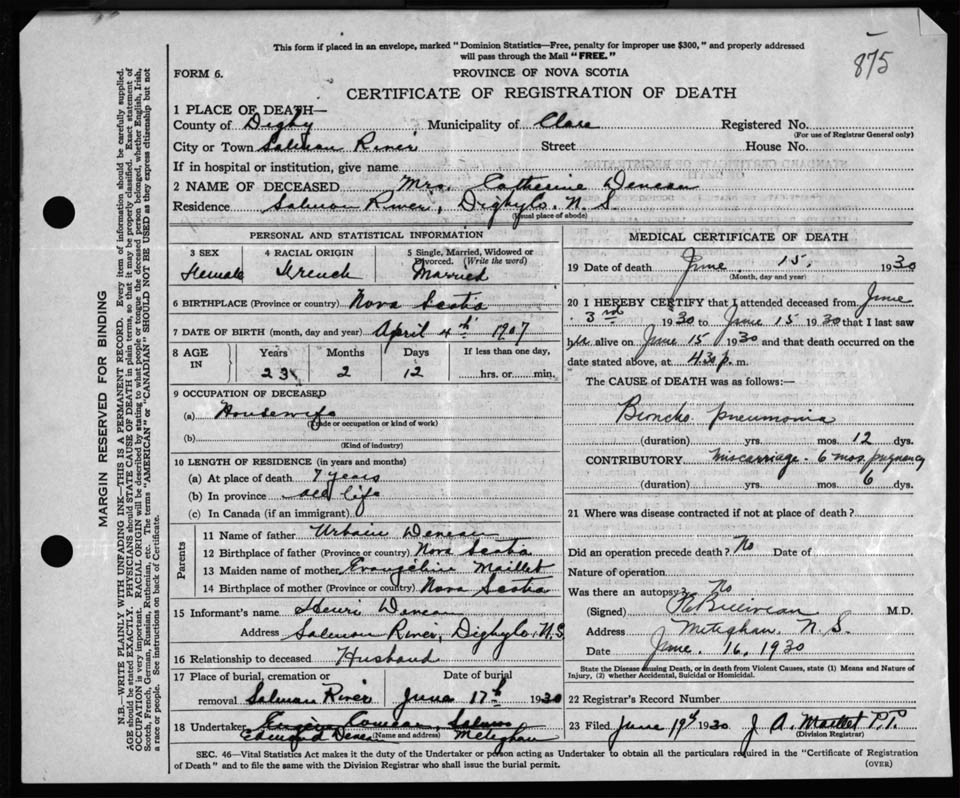 This form if placed in an envelope, marked "Dominion Statistics—Free, penalty for improper use $300," and properly addressed
will pass through the Mail "FREE."
875
FORM 6.
PROVINCE OF NOVA SCOTIA
CERTIFICATE OF REGISTRATION OF DEATH
1 PLACE OF DEATH—
County of Digby Municipality of Clare Registered No.
(For use of Registrar General only)
City or Town Salmon River Street House No.
If in hospital or institution, give name
2 NAME OF DECEASED Mrs. Catherine Deveau
Residence Salmon River, Digby Co. N. S.
(Usual place of abode)
PERSONAL AND STATISTICAL INFORMATION
3 SEX
Female
4 RACIAL ORIGIN
French
5 Single, Married, Widowed or
Divorced. (Write the word)
Married
6 BIRTHPLACE (Province or country) Nova Scotia
7 DATE OF BIRTH (month, day and year) April 4th 1907
8 AGE
IN
Years Months Days If less than one day,
23 2 12 hrs. or min.
9 OCCUPATION OF DECEASED
(a) Housewife
(Trade or occupation or kind of work)
(b)
(Kind of industry)
10 LENGTH OF RESIDENCE (in years and months)
(a) At place of death 7 years
(b) In province all life
(c) In Canada (if an immigrant)
Parents
11 Name of father Urbain Deveau
12 Birthplace of father (Province or country) Nova Scotia
13 Maiden name of mother Evangeline Maillet
14 Birthplace of mother (Province or country) Nova Scotia
15 Informant's name Henri Deveau
Address Salmon River, Digby Co. N.S.
16 Relationship to deceased Husband
17 Place of burial, cremation or Date of burial
removal Salmon River June 17th 1930
18 Undertaker Comeau, Salmon
(Name and address) Meteghan
MEDICAL CERTIFICATE OF DEATH
19 Date of death June 15, 1930
(Month, day and year)
20 I HEREBY CERTIFY that I attended deceased from June
3rd 1930 to June 15 1930 that I last saw
her alive on June 15 1930 and that death occurred on the
date stated above, at 4.30 p. m.
The CAUSE of DEATH was as follows:—
Broncho pneumonia
(duration) yrs. mos. 12 dys.
CONTRIBUTORY miscarriage - 6 mos. pregnancy
(duration) yrs. mos. 6 dys.
21 Where was disease contracted if not at place of death?
Did an operation precede death? No Date of
Nature of operation
Was there an autopsy? No
(Signed) M.D.
Address Meteghan. N.S.
Date June. 16, 1930
State the Disease causing Death, or in death from Violent Causes, state (1) Means and Nature of
Injury, (2) whether Accidental, Suicidal or Homicidal.
22 Registrar's Record Number
23 Filed June 19th 1930 J. A. Maillet P.P.
(Division Registrar)
SEC. 46—Vital Statistics Act makes it the duty of the Undertaker or person acting as Undertaker to obtain all the particulars required in the "Certificate of Registration
of Death" and to file the same with the Division Registrar who shall issue the burial permit.
(OVER)
MARGIN RESERVED FOR BINDING
N.B.—WRITE PLAINLY WITH UNFADING INK—THIS IS A PERMANENT RECORD. Every item of information should be carefully supplied.
AGE should be stated EXACTLY. PHYSICIANS should STATE CAUSE OF DEATH in plain terms, so that it may be properly classified. Exact statement of
OCCUPATION is very important. RACIAL ORIGIN will be described by stating to what people or tongue the deceased person belonged, whether English, Irish,
Scotch, French, German, Russian, Ruthenian, etc. The terms "AMERICAN" or "CANADIAN" SHOULD NOT BE USED as they express citizenship but not
a race or people. See instructions on back of Certificate.